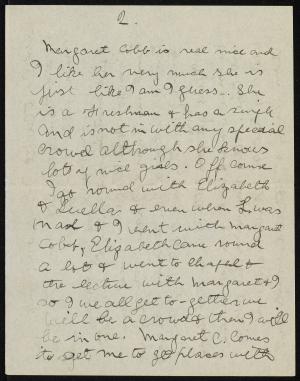 2.
Margaret Cobb is real nice and
I like her very much she is
just like I am I guess. She
is a Freshman & has a single
and is not in with any special
crowd although she knows
lots of nice girls. Off course
I go round with Elizabeth
& Luella & even when L was
mad & I went with Margaret
Cobb, Elizabeth came round
a lot & went to chapel &
the lecture with Margaret & I
so I we all get to-gether we
will be a crowd & then I will
be in one. Margaret C. comes
to get me to go places with